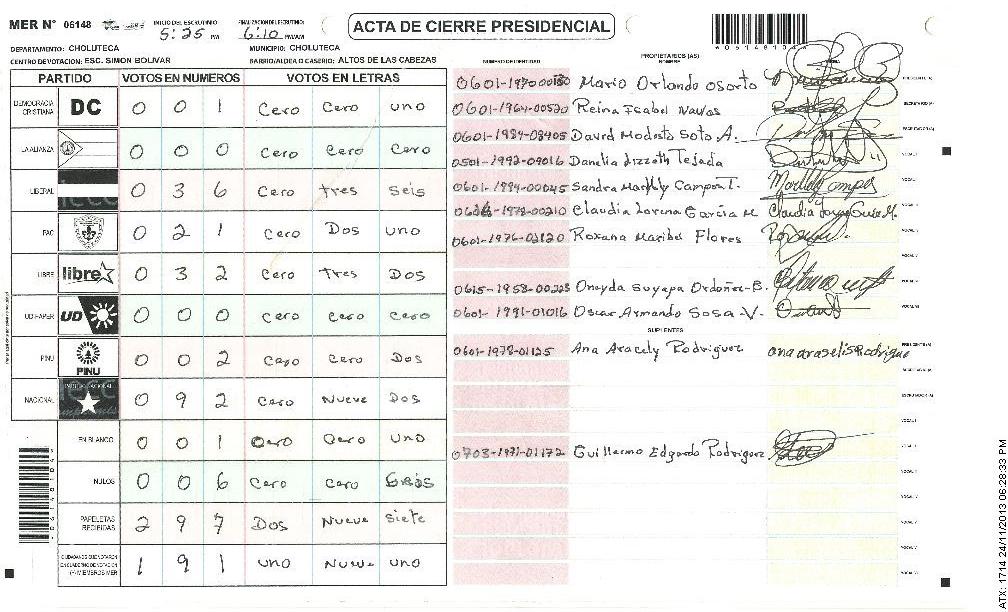 MER N° 06148 INICIO DEL ESCRUTINIO 5:25 PM FINALIZACION DEL ESCRUTINIO: 6:10 PM/AM ACTA DE CIERRE PRESIDENCIAL
DEPARTAMENTO: CHOLUTECA MUNICIPIO: CHOLUTECA
CENTRO DE VOTACION: ESC. SIMON BOLIVAR BARRIO/ALDEA O CASERIO: ALTOS DE LAS CABEZAS
PARTIDO VOTOS EN NUMEROS VOTOS EN LETRAS
DEMOCRACIA CRISTIANA DC 0 0 1 Cero Cero uno
LA ALIANZA 0 0 0 Cero Cero Cero
LIBERAL 0 3 6 Cero Tres Seis
PAC 0 2 1 Cero Dos uno
LIBRE libre 0 3 2 Cero Tres Dos
UD-FAPER UD 0 0 0 Cero Cero Cero
PINU PINU 0 0 2 Cero Cero Dos
NACIONAL 0 9 2 Cero Nueve Dos
EN BLANCO 0 0 1 Cero Cero uno
NULOS 0 0 6 Cero Cero Seis
PAPELETAS RECIBIDAS 2 9 7 Dos Nueve Siete
CIUDADANOS QUE VOTARON EN CUADERNO DE VOTACION (+) MIEMBROS MER 1 9 1 uno Nueve uno
NUMERO DE IDENTIDAD PROPIETARIOS (AS) NOMBRE FIRMA
Mario Orlando Osorto PRESIDENTE (A)
0601-1964-00520 Reina Isabel Navas SECRETARIO (A)
0601-1984-03405 David Modesto Soto A. ESCRUTADOR (A)
0501-1992-09016 Danelia Lizzeth Tejada VOCAL I
0601-1994-00045 Sandra Campon T.
Claudia Lorena García M.
0601-1976-02120 Roxana Maribel Flores
0615-1958-00223 Oneyda Suyapa Ordoñez B.
0601-1991-01016 Oscar Armando Sosa V.
SUPLENTES
0601-1978-01125 Ana Aracely Rodriguez ana araselis Rodrigue PRESIDENTE (A)
SECRETARIO (A)
ESCRUTADOR (A)
0703-1971-01172 Guillermo Edgardo Rodriguez
ATX: 1714 24/11/2013 06:28:33 PM